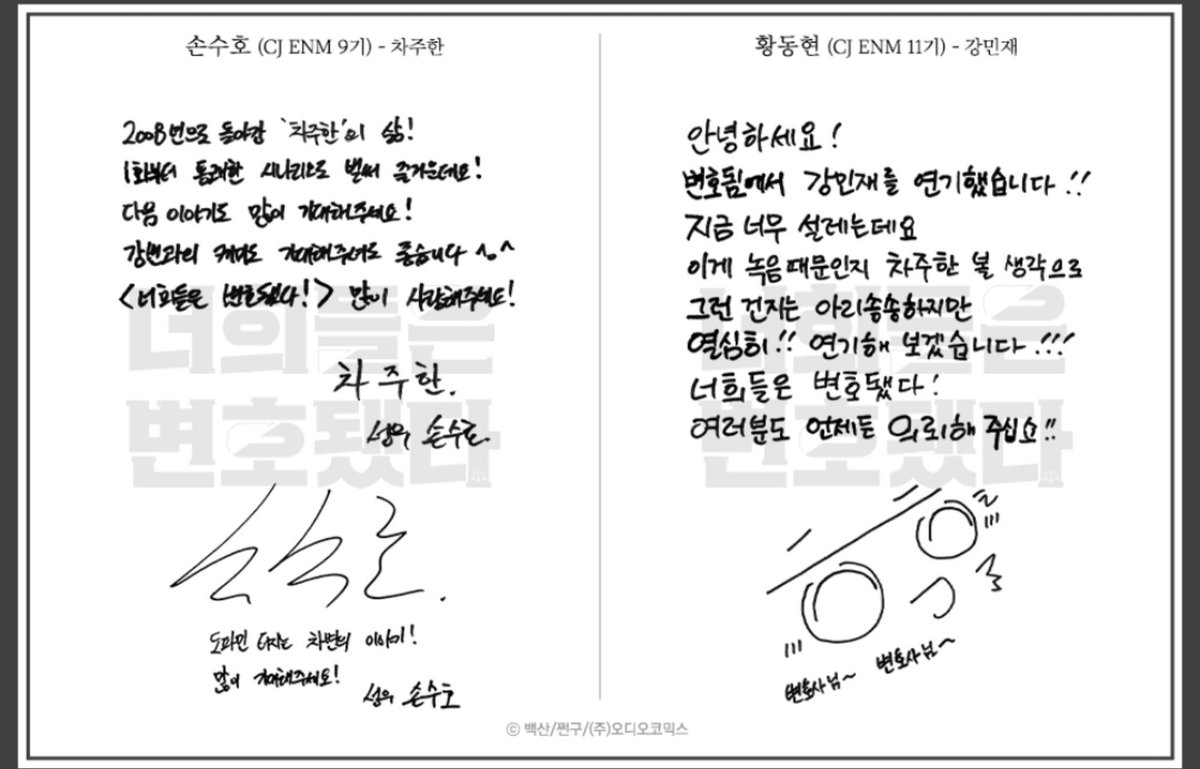 손수호 (CJ ENM 9기) - 차주한
2008년으로 돌아간 '차주한'의 삶!
1화부터 통쾌한 시나리오로 벌써 즐거운데요!
다음 이야기도 많이 기대해주세요!
강변과의 케미도 기대해주셔도 좋습니다 ^o^
<너희들은 변호됐다!> 많이 사랑해주세요!
차주한.
성우 손수호.
도파민 터지는 차변의 이야기!
많이 기대해주세요!
성우 손수호
황동현 (CJ ENM 11기) - 강민재
안녕하세요!
변호됨에서 강민재를 연기했습니다!!
지금 너무 설레는데요
이게 녹음때문인지 차주한 볼 생각으로
그런 건지는 아리송송하지만
열심히!! 연기해 보겠습니다!!!
너희들은 변호됐다!
여러분도 언제든 의뢰해 주십쇼!!
변호사님~ 변호사님~
너희들은
변호됐다
너희들은
변호됐다
© 백산/쩐구/(주)오디오코믹스